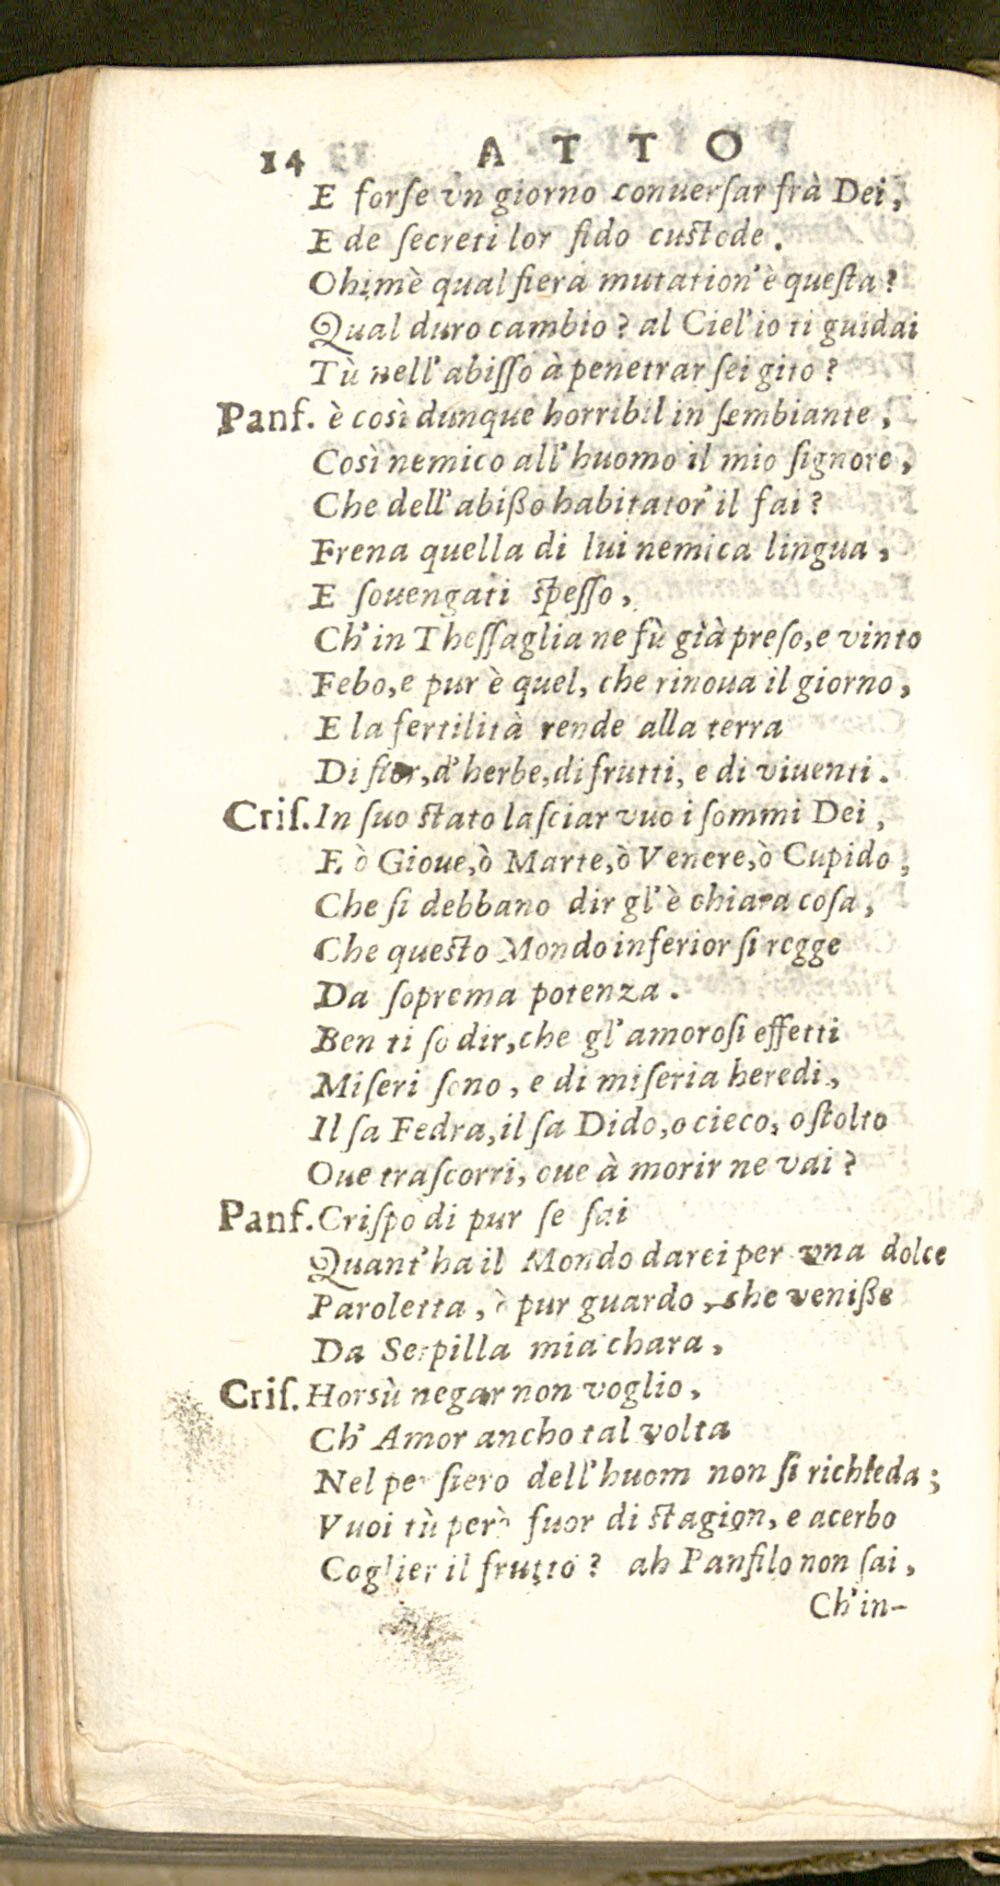 14 ATTO
E forſe vn giorno conuerſar frà Dei,
E de ſecreti lor fido cuſtode.
Ohimè qual fiera mutation' è queſta?
Qual duro cambio? al Ciel' io ti guidai
Tù nell' abiſſo à penetrar ſei gito?
Panf. è così dunque horribil in ſembiante,
Così nemico all' huomo il mio ſignore,
Che dell' abißo habitator' il fai?
Frena quella di lui nemica lingua,
E ſouengati ſpeſſo,
Ch' in Theſſaglia ne fù già preſo, e vinto
Febo, e pur è quel, che rinoua il giorno,
E la fertilità rende alla terra
Di fior, d' herbe, di frutti, e di viuenti.
Criſ. In ſuo ſtato laſciar vuo i ſommi Dei,
E ò Gioue, ò Marte, ò Venere, ò Cupido,
Che ſi debbano dir gl' è chiara coſa,
Che queſto Mondo inferior ſi regge
Da ſoprema potenza.
Ben ti ſo dir, che gl' amoroſi effetti
Miſeri ſono, e di miſeria heredi,
Il ſa Fedra, il ſa Dido, o cieco, o ſtolto
Oue traſcorri, oue à morir ne vai?
Panf. Criſpo di pur ſe ſai
Quant' ha il Mondo darei per vna dolce
Paroletta, ò pur guardo, che venißе
Da Serpilla mia chara,
Criſ. Horsù negar non voglio,
Ch' Amor ancho tal volta
Nel penſiero dell' huom non ſi richieda;
Vuoi tù però fuor di ſtagion, e acerbo
Coglier il frutto? ah Panfilo non ſai,
Ch' in-